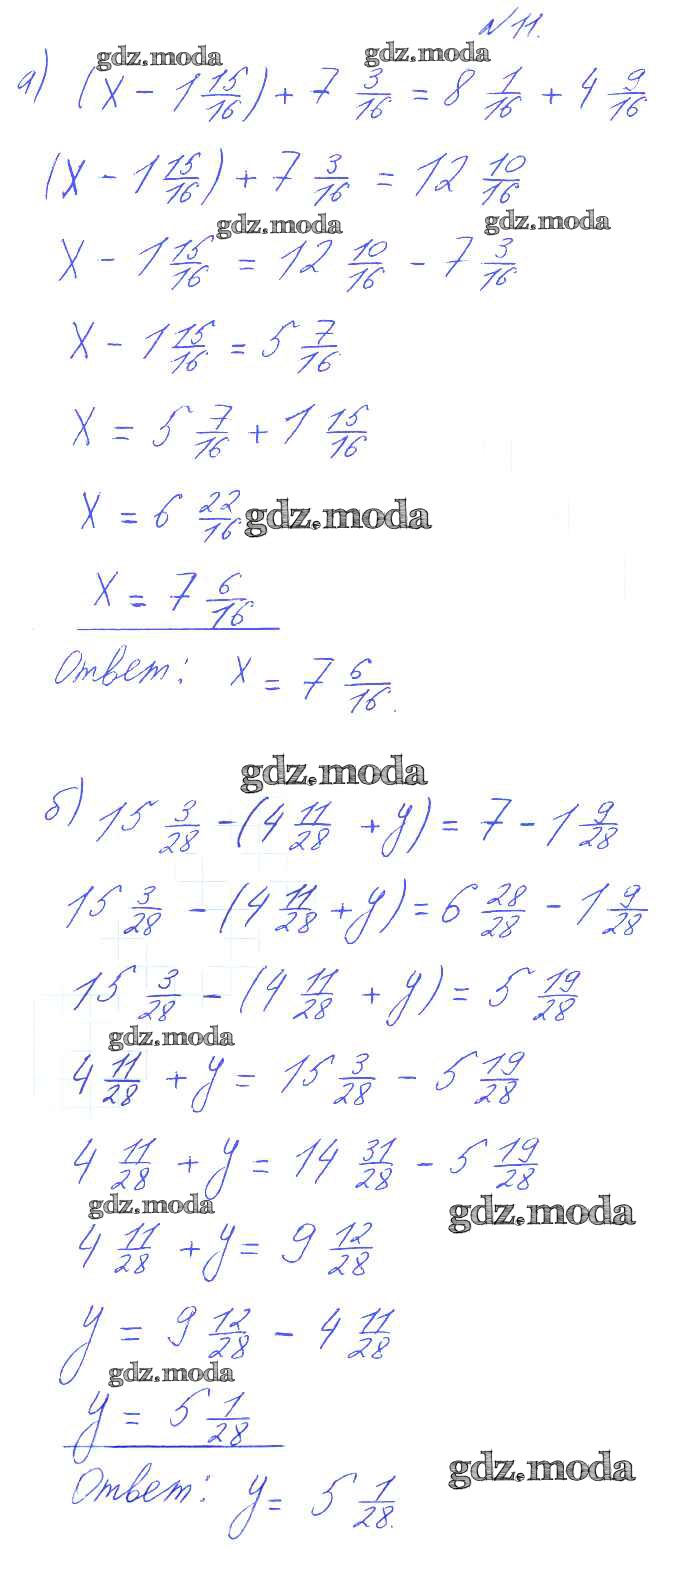 № 11.
gdz.moda gdz.moda
а) (x - 1 15/16) + 7 3/16 = 8 1/16 + 4 9/16
(x - 1 15/16) + 7 3/16 = 12 10/16
gdz.moda gdz.moda
x - 1 15/16 = 12 10/16 - 7 3/16
x - 1 15/16 = 5 7/16
x = 5 7/16 + 1 15/16
x = 6 22/16 gdz.moda
x = 7 6/16
Ответ: x = 7 6/16.
gdz.moda
б) 15 3/28 - (4 11/28 + y) = 7 - 1 9/28
15 3/28 - (4 11/28 + y) = 6 28/28 - 1 9/28
15 3/28 - (4 11/28 + y) = 5 19/28
gdz.moda
4 11/28 + y = 15 3/28 - 5 19/28
4 11/28 + y = 14 31/28 - 5 19/28
gdz.moda gdz.moda
4 11/28 + y = 9 12/28
y = 9 12/28 - 4 11/28
gdz.moda
y = 5 1/28
gdz.moda
Ответ: y = 5 1/28.